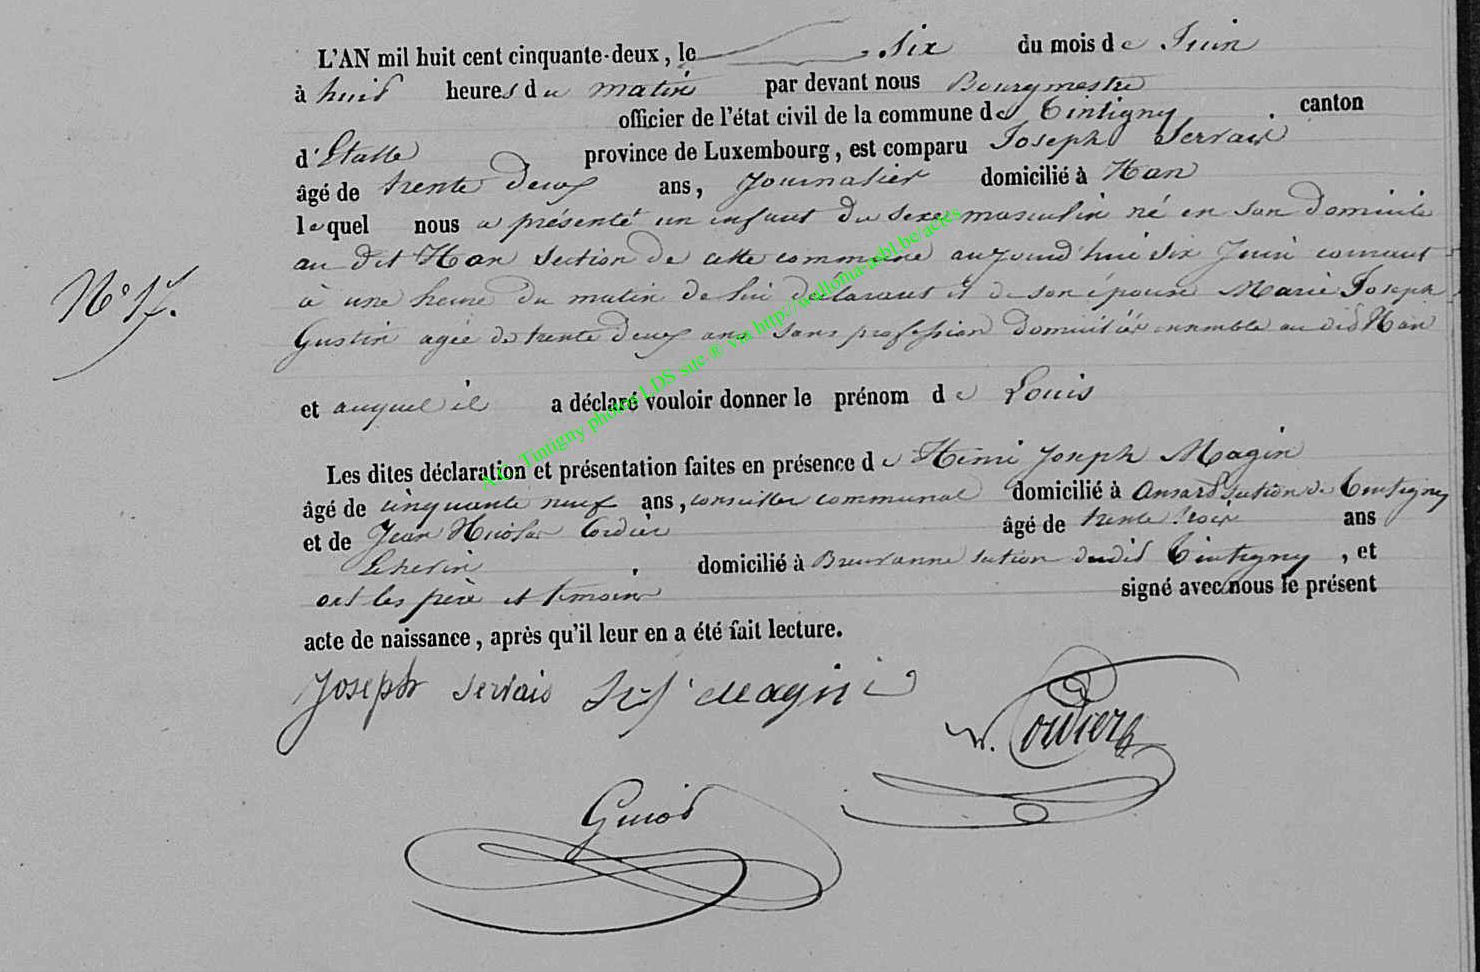 L'AN mil huit cent cinquante-deux, le six du mois de Juin
à huit heures du matin par devant nous Bourgmestre
officier de l'état civil de la commune de Tintigny canton
d'Etalle province de Luxembourg, est comparu Joseph Servais
âgé de trente deux ans, Journalier domicilié à Han
lequel nous a présenté un enfant du sexe masculin né en son domicile
au dit Han section de cette commune aujourd'hui six Juin courant
N° 17.
à une heure du matin de lui déclarant et de son épouse Marie Joseph
Gustin agée de trente deux ans sans profession domiciliés ensemble au dit Han
et auquel il a déclaré vouloir donner le prénom de Louis
Les dites déclaration et présentation faites en présence de Henri Joseph Magin
âgé de cinquante neuf ans, conseiller communal domicilié à Ansart section de Tintigny
et de Jean Nicolas Cordier âgé de trente trois ans
Echevin, domicilié à Breuvanne section dudit Tintigny, et
ont les père et temoins signé avec nous le présent
acte de naissance, après qu'il leur en a été fait lecture.
Joseph Servais Magin
N. Cordier
Guiot
Tintigny photos LDS site ® via http://wallonia-asbl.be/actes